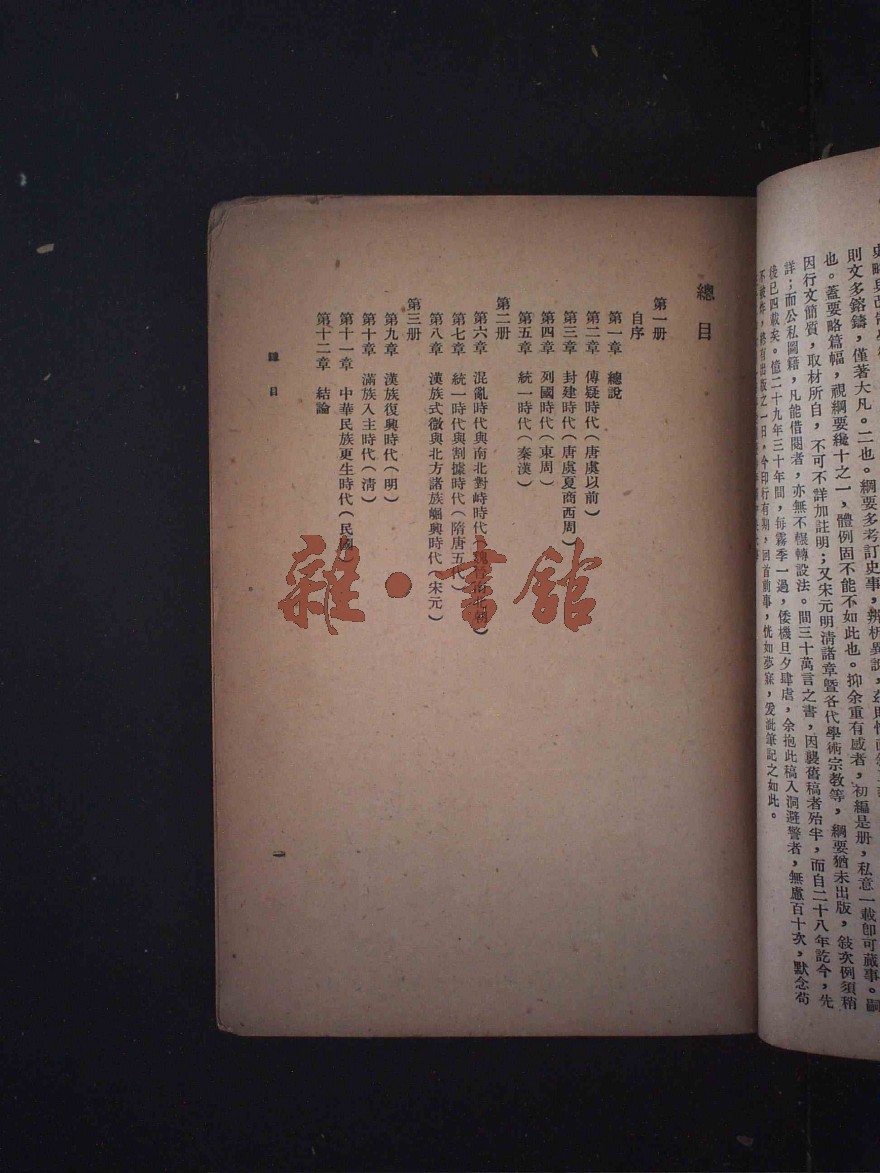 史略與
則文多鎔鑄，僅著大凡。二也。綱要多考訂史事，辨析異說，
也。蓋要略篇幅，視綱要纔十之一，體例固不能不如此也。抑余重有感者，初編是册，私意一載卽可蕆事。嗣
因行文簡質，取材所自，不可不詳加註明；又宋元明清諸章曁各代學術宗教等，綱要猶未出版，敍次例須稍
詳；而公私圖籍，凡能借閱者，亦無不輾轉設法。間三十萬言之書，因襲舊稿者殆半，而自二十八年訖今，先
後已四載矣。億二十九年三十年間，每霧季一過，倭機旦夕肆虐，余抱此稿入洞避警者，無慮百十次，默念苟
不　　，將有出版之一日，今印行有期，回首前事，恍如夢寐，爰泚筆記之如此。
總目
第一册
自序
第一章　總說
第二章　傳疑時代（唐虞以前）
第三章　封建時代（唐虞夏商西周）
第四章　列國時代（東周）
第五章　統一時代（秦漢）
第二册
第六章　混亂時代與南北對峙時代（魏晉南北朝）
第七章　統一時代與割據時代（隋唐五代）
第八章　漢族式微與北方諸族崛興時代（宋元）
第三册
第九章　漢族復興時代（明）
第十章　滿族入主時代（清）
第十一章　中華民族更生時代（民國）
第十二章　結論
總目
一
雜·書館